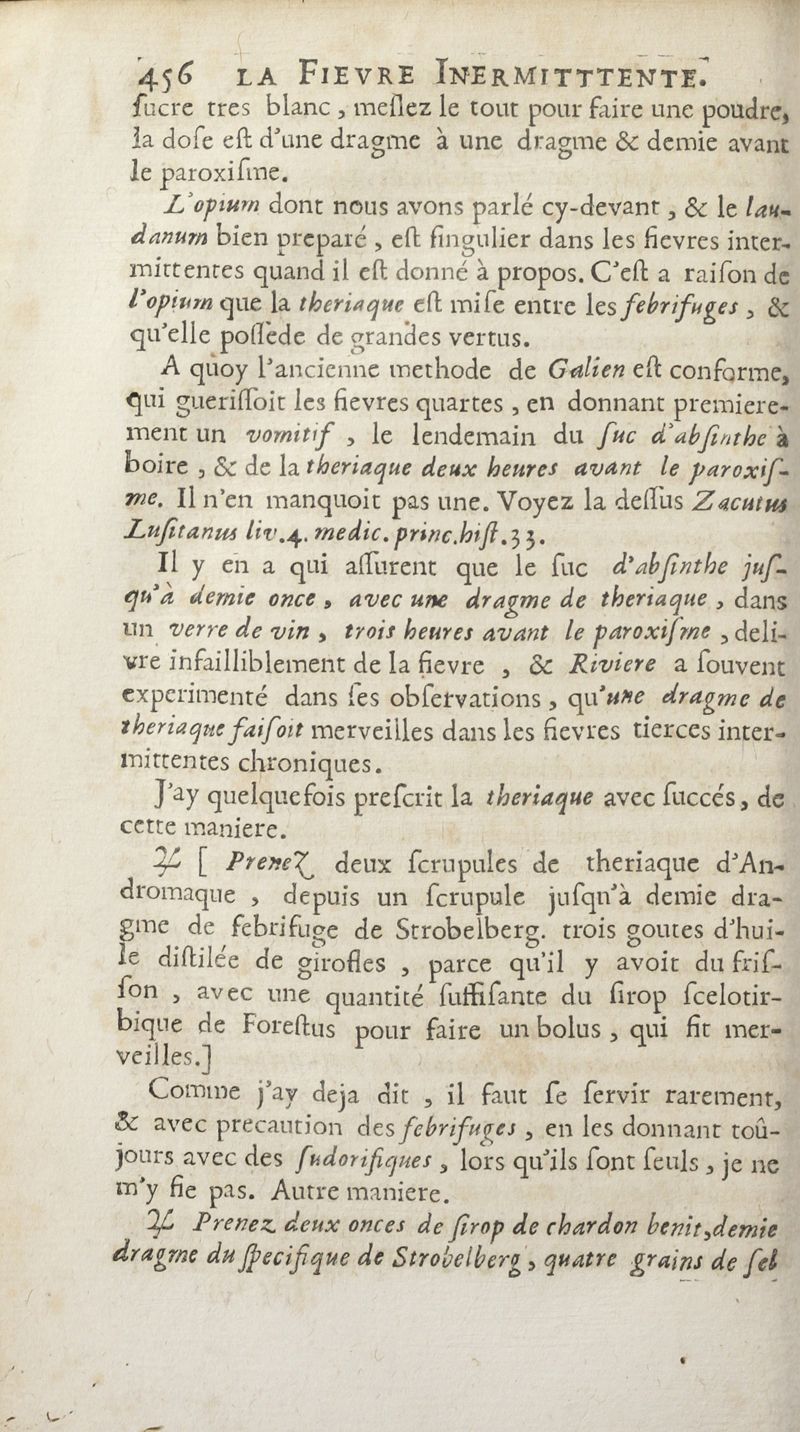 456 LA FIEVRE INERMITTTENTE.
ſucre tres blanc, meſlez le tout pour faire une poudre,
la doſe eſt d'une dragme à une dragme & demie avant
le paroxiſme.
L'opium dont nous avons parlé cy-devant, & le lau-
danum bien preparé, eſt ſingulier dans les fievres inter-
mittentes quand il eſt donné à propos. C'eſt a raiſon de
l'opium que la theriaque eſt miſe entre les febrifuges, &
qu'elle poſſede de grandes vertus.
A quoy l'ancienne methode de Galien eſt conforme,
qui gueriſſoit les fievres quartes, en donnant premiere-
ment un vomitif, le lendemain du ſuc d'abſinthe à
boire, & de la theriaque deux heures avant le paroxiſ-
me. Il n'en manquoit pas une. Voyez la deſſus Zacutus
Luſitanus liv.4. medic. princ.hiſt.33.
Il y en a qui aſſurent que le ſuc d'abſinthe juſ-
qu'à demie once, avec une dragme de theriaque, dans
un verre de vin, trois heures avant le paroxiſme, deli-
vre infailliblement de la fievre, & Riviere a ſouvent
experimenté dans ſes obſervations, qu'une dragme de
theriaque faiſoit merveilles dans les fievres tierces inter-
mittentes chroniques.
J'ay quelquefois preſcrit la theriaque avec ſuccés, de
cette maniere.
♃ [ Prenez deux ſcrupules de theriaque d'An-
dromaque, depuis un ſcrupule juſqu'à demie dra-
gme de febrifuge de Strobelberg. trois goutes d'hui-
le diſtilée de girofles, parce qu'il y avoit du friſ-
ſon, avec une quantité ſuffiſante du ſirop ſcelotir-
bique de Foreſtus pour faire un bolus, qui fit mer-
veilles.]
Comme j'ay deja dit, il faut ſe ſervir rarement,
& avec precaution des febrifuges, en les donnant toû-
jours avec des ſudorifiques, lors qu'ils ſont ſeuls, je ne
m'y fie pas. Autre maniere.
♃ Prenez deux onces de ſirop de chardon benit, demie
dragme du ſpecifique de Strobelberg, quatre grains de ſel